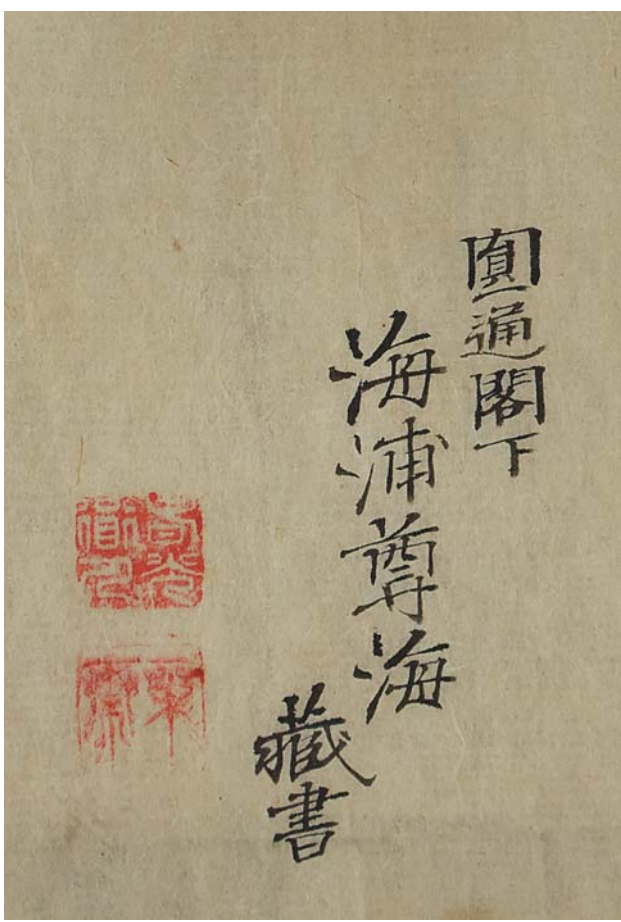 圓通閣下
海浦尊海
藏書